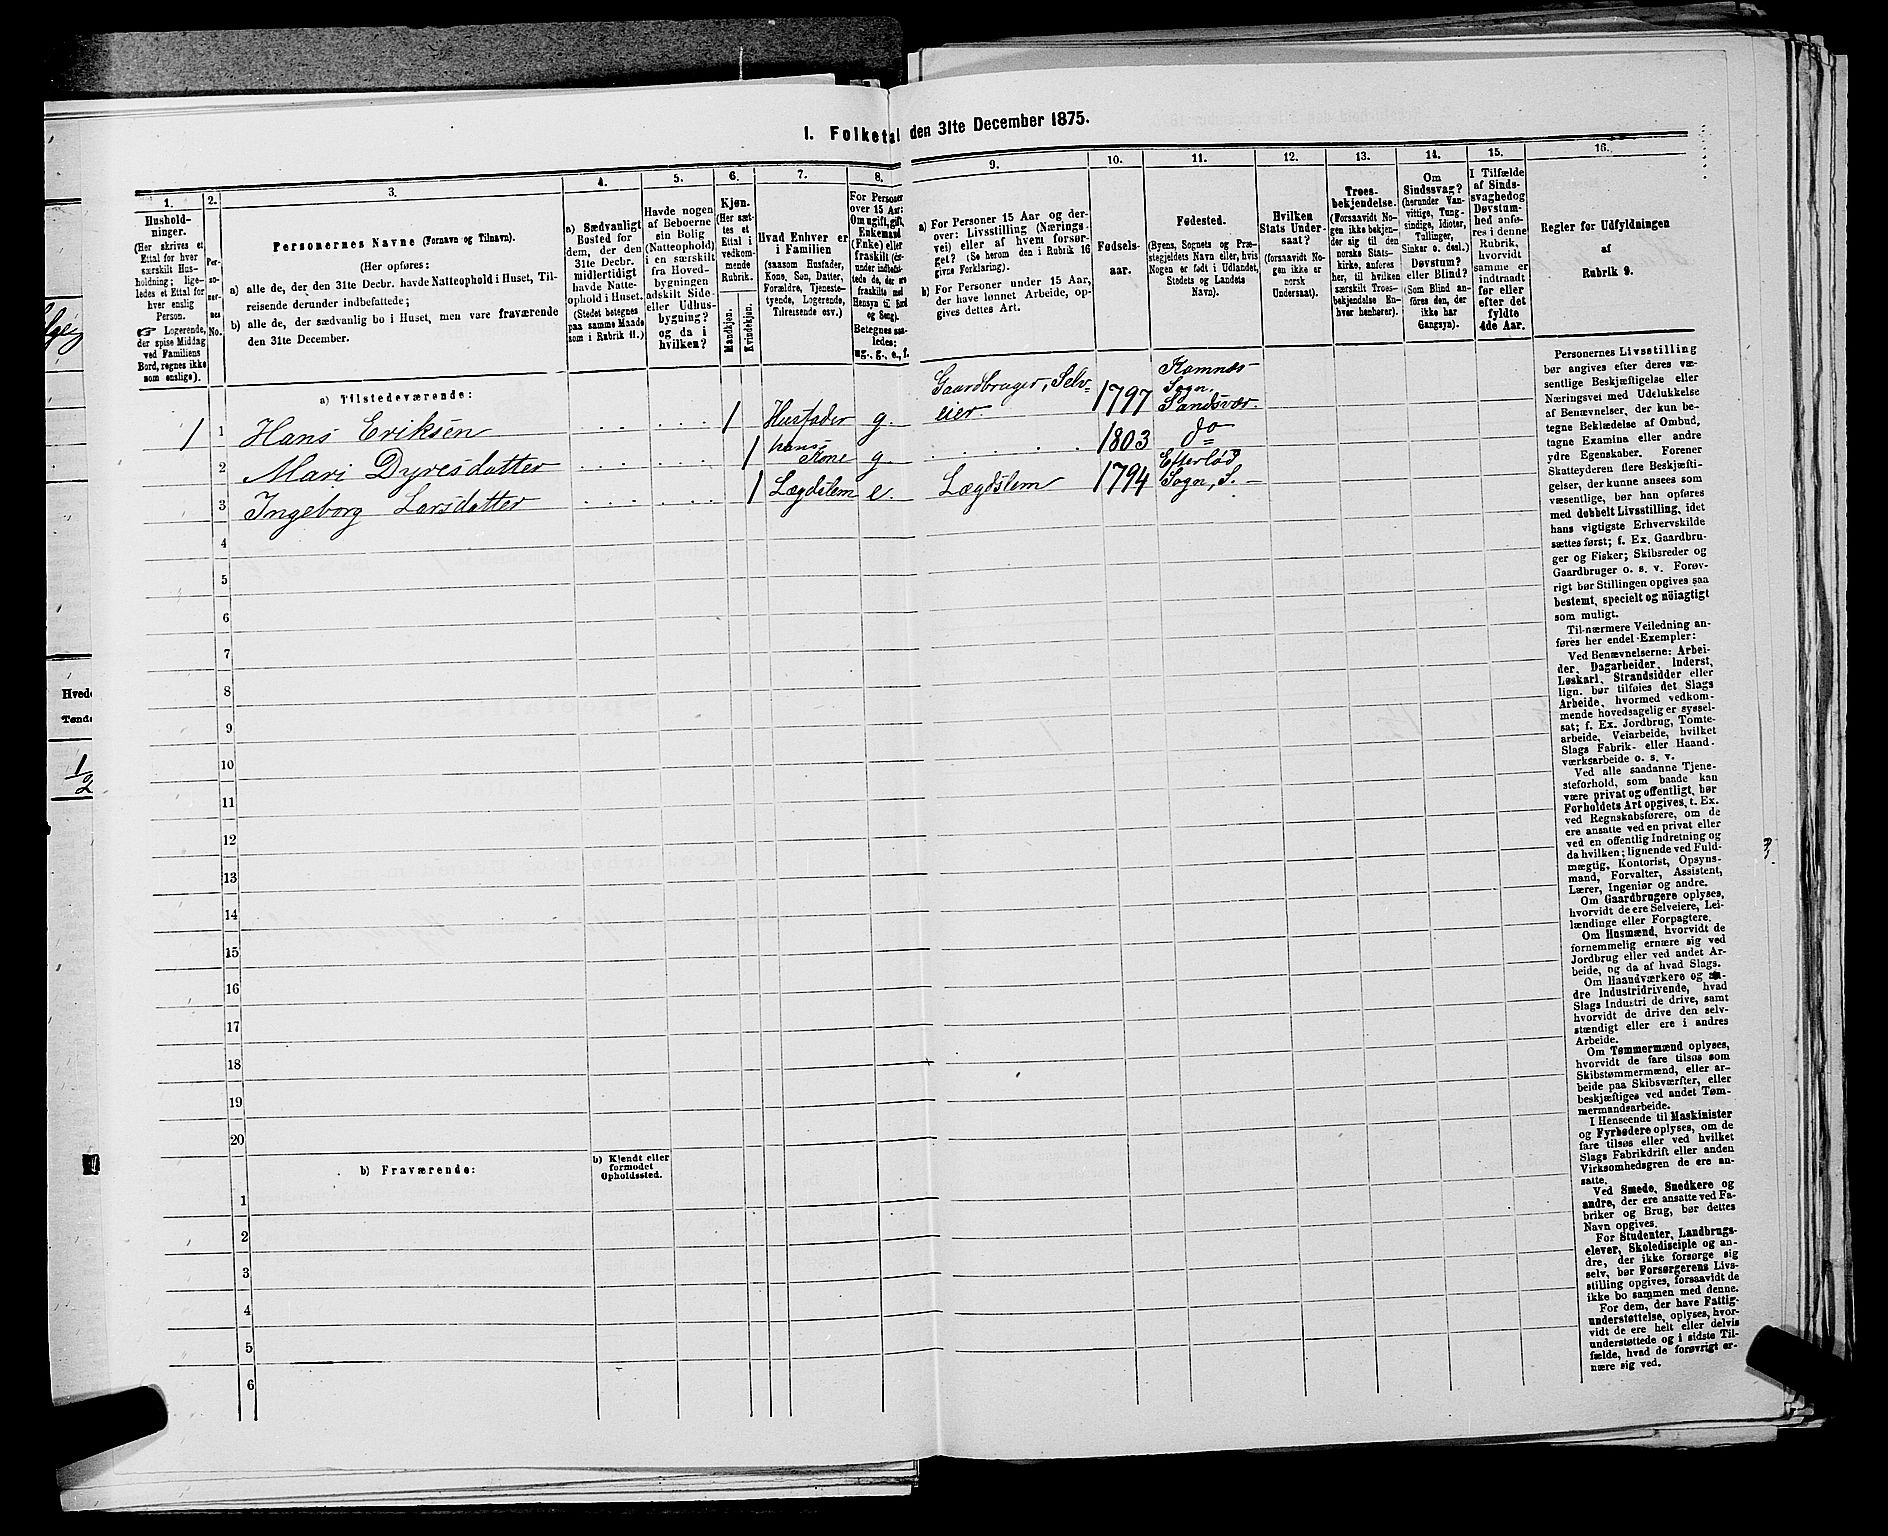 I. Folketal den 31te December 1875.
1.
Hushold-
ninger.
(Her skrives et
Ettal for hver
særskilt Hus-
holdning; lige-
ledes et Ettal for
hver enslig
Person.
☞ Logerende,
der spise Middag
ved Familiens
Bord, regnes ikke
som enslige).
2.
Per-
so-
ner-
nes
No.
3.
Personernes Navne (Fornavn og Tilnavn).
(Her opføres:
a) alle de, der den 31te Decbr. havde Natteophold i Huset, Til-
reisende derunder indbefattede;
b) alle de, der sædvanlig bo i Huset, men vare fraværende
den 31te December.
4.
a) Sædvanligt
Bosted for
dem, der den
31te Decbr.
midlertidigt
havde Natte-
ophold i Huset.
(Stedet betegnes
paa samme Maade
som i Rubrik 11.)
5.
Havde nogen
af Beboerne
sin Bolig
(Natteophold)
i en særskilt
fra Hoved-
bygningen
adskilt Side-
eller Udhus-
bygning?
og da i
hvilken?
6.
Kjøn.
(Her sæt-
tes et
Ettal i
vedkom-
mende
Rubrik.
Mandkjøn.
Kvindekjøn.
7.
Hvad Enhver er
i Familien
(saasom Husfader,
Kone, Søn, Datter,
Forældre, Tjeneste-
tyende, Logerende,
Tilreisende osv.)
8.
For Personer
over 15 Aar:
Om ugift, gift,
Enkemand
(Enke) eller
fraskilt
Betegnes saa-
ledes:
ug., g., e., f.
9.
a) For Personer 15 Aar og der-
over: Livsstilling (Nærings-
vei) eller af hvem forsør-
get? (Se herom den i Rubrik 16
givne Forklaring).
b) For Personer under 15 Aar,
der have lønnet Arbeide, op-
gives dettes Art.
10.
Fødsels-
aar.
11.
Fødested.
(Byens, Sognets og Præ-
stegjeldets Navn eller, hvis
Nogen er født i Udlandet,
Stedets og Landets
Navn).
12.
Hvilken
Stats Under-
saat?
(forsaavidt No-
gen ikke er
norsk
Undersaat).
13.
Troes-
bekjendelse.
(Forsaavidt No-
gen ikke bekjen-
der sig til den
norske Stats-
kirke, anføres
her, til hvilken
særskilt Troes-
bekjendelse En-
hver henhører).
14.
Om
Sindssvag?
(herunder Van-
vittige, Tung-
sindige, Idioter,
Tullinger,
Sinker o. desl.).
Døvstum?
eller Blind?
(Som Blind an-
føres den, der
ikke har
Gangsyn).
15.
I Tilfælde
af Sinds-
svaghedog
Døvstum-
hed anfø-
res i denne
Rubrik,
hvorvidt
samme er
indtraadt
før eller
efter det
fyldte
4de Aar.
16.
Regler for Udfyldningen
af
Rubrik 9.
a) Tilstedeværende:
1 1 Hans Eriksen 1 Husfader g. Gaardbruger, Selv=
eier 1797 Komnæs
Sogn,
Sandsvær.
2 Mari Dyresdatter 1 hans
Kone g. 1803 do
3 Ingeborg Larsdatter 1 Lægdslem e. Lægdslem 1794 Efterlød
Sogn, S.
4
5
6
7
8
9
10
11
12
13
14
15
16
17
18
19
20
b) Fraværende:
b) Kjendt eller
formodet
Opholdssted.
1
2
3
4
5
6
Personernes Livsstilling
bør angives efter deres væ-
sentlige Beskjæftigelse eller
Næringsvei med Udelukkelse
af Benævnelser, der kun be-
tegne Beklædelse af Ombud,
tagne Examina eller andre
ydre Egenskaber. Forener
Skatteyderen flere Beskjæfti-
gelser, der kunne ansees som
væsentlige, bør han opføres
med dobbelt Livsstilling, idet
hans vigtigste Erhvervskilde
sættes først; f. Ex. Gaardbru-
ger og Fisker; Skibsreder og
Gaardbruger o. s. v. Forøv-
rigt bør Stillingen opgives saa
bestemt, specielt og nöiagtigt
som muligt.
Til nærmere Veiledning an-
føres her endel Exempler:
Ved Benævnelserne: Arbei-
der, Dagarbeider, Inderst,
Løskarl, Strandsidder eller
lign. bør tilføies det Slags
Arbeide, hvormed vedkom-
mende hovedsagelig er syssel-
sat; f. Ex. Jordbrug, Tomte-
arbeide, Veiarbeide, hvilket
Slags Fabrik- eller Haand-
værksarbeide o. s. v.
Ved alle saadanne Tjene-
steforhold, som baade kan
være privat og offentligt, bør
Forholdets Art opgives, t. Ex.
ved Regnskabsførere, om de
ere ansatte ved en privat eller
ved en offentlig Indretning og
da hvilken; lignende ved Fuld-
mægtig, Kontorist, Opsyns-
mand, Forvalter, Assistent,
Lærer, Ingeniør og andre.
Om Gaardbrugere oplyses,
hvorvidt de ere Selveiere, Lei-
lændinge eller Forpagtere.
Om Husmænd, hvorvidt de
fornemmelig ernære sig ved
Jordbrug eller ved andet Ar-
beide, og da af hvad Slags.
Om Haandværkere og an-
dre Industridrivende, hvad
Slags Industri de drive, samt
hvorvidt de drive den selv-
stændigt eller ere i andres
Arbeide.
Om Tømmermænd oplyses,
hvorvidt de fare tilsøs som
Skibstømmermænd, eller ar-
beide paa Skibsværfter, eller
beskjæftiges ved andet Tøm-
mermandsarbeide.
I Henseende til Maskinister
og Fyrbødere oplyses, om de
fare tilsøs eller ved hvilket
Slags Fabrikdrift eller anden
Virksomhedsgren de ere an-
satte.
Ved Smede, Snedkere og
andre, der ere ansatte ved Fa-
briker og Brug, bør dettes
Navn opgives.
For Studenter, Landbrugs-
elever, Skoledisciple og an-
dre, der ikke forsørge sig
selv, bør Forsørgerens Livs-
stilling opgives, forsaavidt de
ikke bo sammen med denne.
For dem, der have Fattig-
understøttelse, oplyses, hvor-
vidt de ere helt eller delvis
understøttede og i sidste Til-
fælde, hvad de forøvrigt er-
nære sig ved.
Hvede
Tønde
1/2